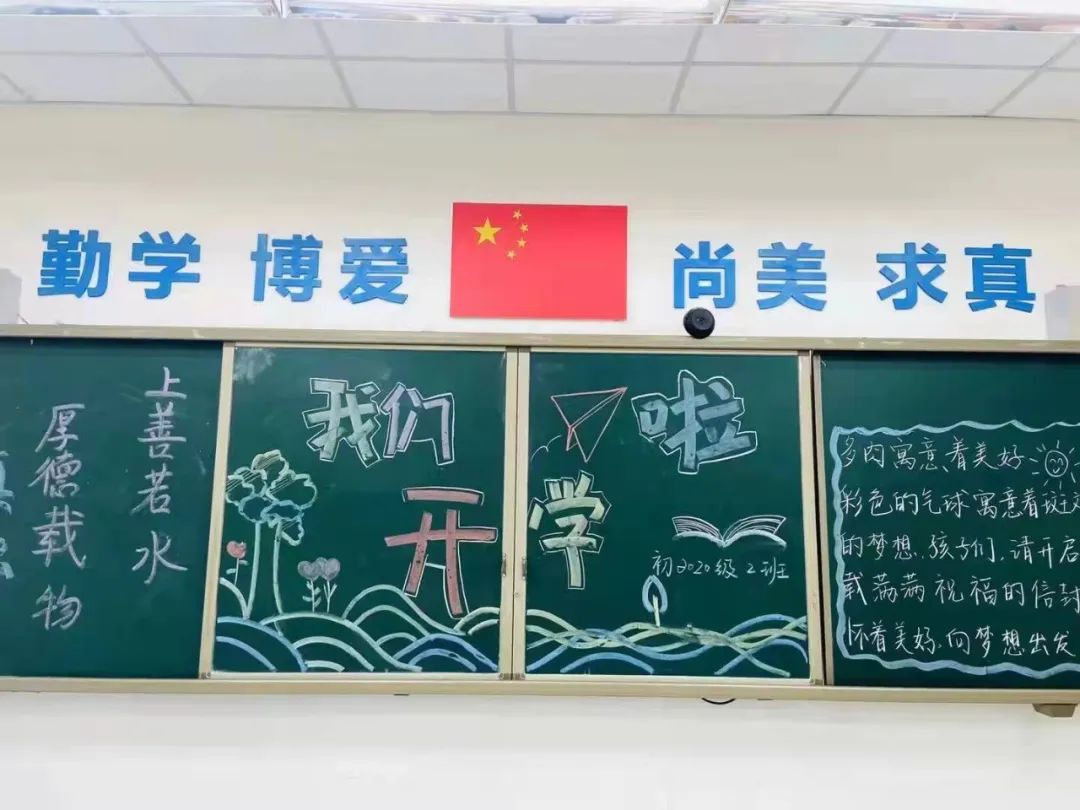 勤学 博爱 尚美 求真
上善若水
厚德载物
我们
开学
啦
初2020级2班
多肉寓意着美好
彩色的气球寓意着斑
的梦想.孩子们,请开启
载满满祝福的信封
怀着美好,向梦想出发